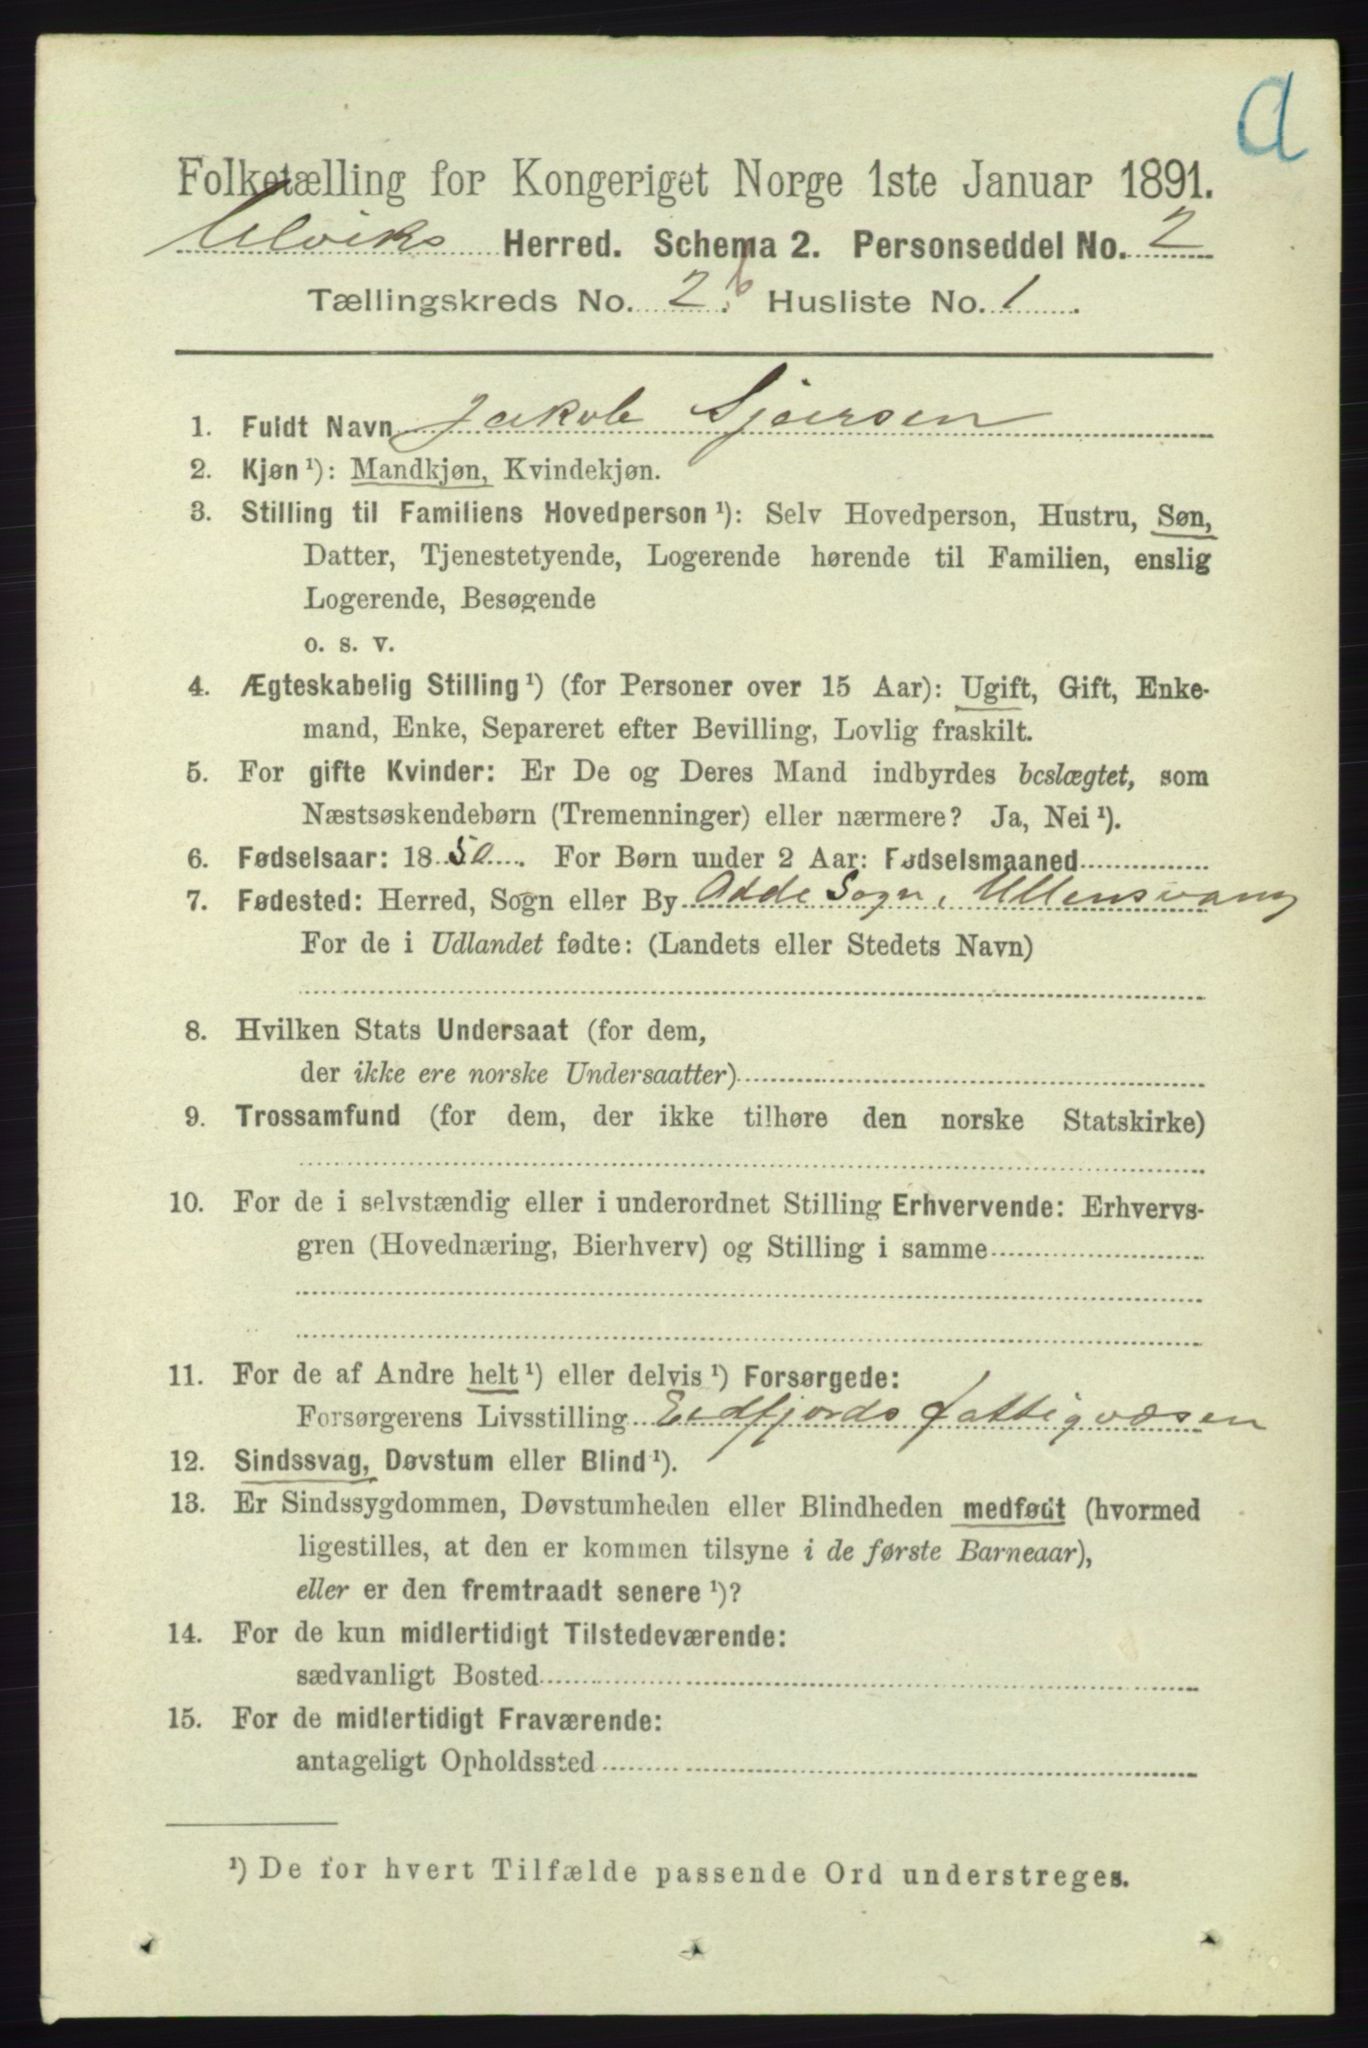 a
Folketælling for Kongeriget Norge 1ste Januar 1891.
Ulviks Herred. Schema 2. Personseddel No. 2
Tællingskreds No. 2 b Husliste No. 1.
1. Fuldt Navn Jakob Sjursen
2. Kjøn ¹): Mandkjøn, Kvindekjøn.
3. Stilling til Familiens Hovedperson ¹): Selv Hovedperson, Hustru, Søn,
Datter, Tjenestetyende, Logerende hørende til Familien, enslig
Logerende, Besøgende
o. s. v.
4. Ægteskabelig Stilling ¹) (for Personer over 15 Aar): Ugift, Gift, Enke-
mand, Enke, Separeret efter Bevilling, Lovlig fraskilt.
5. For gifte Kvinder: Er De og Deres Mand indbyrdes beslægtet, som
Næstsøskendebørn (Tremenninger) eller nærmere? Ja, Nei ¹).
6. Fødselsaar: 1850. For Børn under 2 Aar: Fødselsmaaned
7. Fødested: Herred, Sogn eller By Odde Sogn, Ullensvang
For de i Udlandet fødte: (Landets eller Stedets Navn)
8. Hvilken Stats Undersaat (for dem,
der ikke ere norske Undersaatter)
9. Trossamfund (for dem, der ikke tilhøre den norske Statskirke)
10. For de i selvstændig eller i underordnet Stilling Erhvervende: Erhvervs-
gren (Hovednæring, Bierhverv) og Stilling i samme
11. For de af Andre helt ¹) eller delvis ¹) Forsørgede:
Forsørgerens Livsstilling Eidfjords fattigvæsen
12. Sindssvag, Døvstum eller Blind ¹).
13. Er Sindssygdommen, Døvstumheden eller Blindheden medfødt (hvormed
ligestilles, at den er kommen tilsyne i de første Barneaar),
eller er den fremtraadt senere ¹)?
14. For de kun midlertidigt Tilstedeværende:
sædvanligt Bosted
15. For de midlertidigt Fraværende:
antageligt Opholdssted
¹) De for hvert Tilfælde passende Ord understreges.